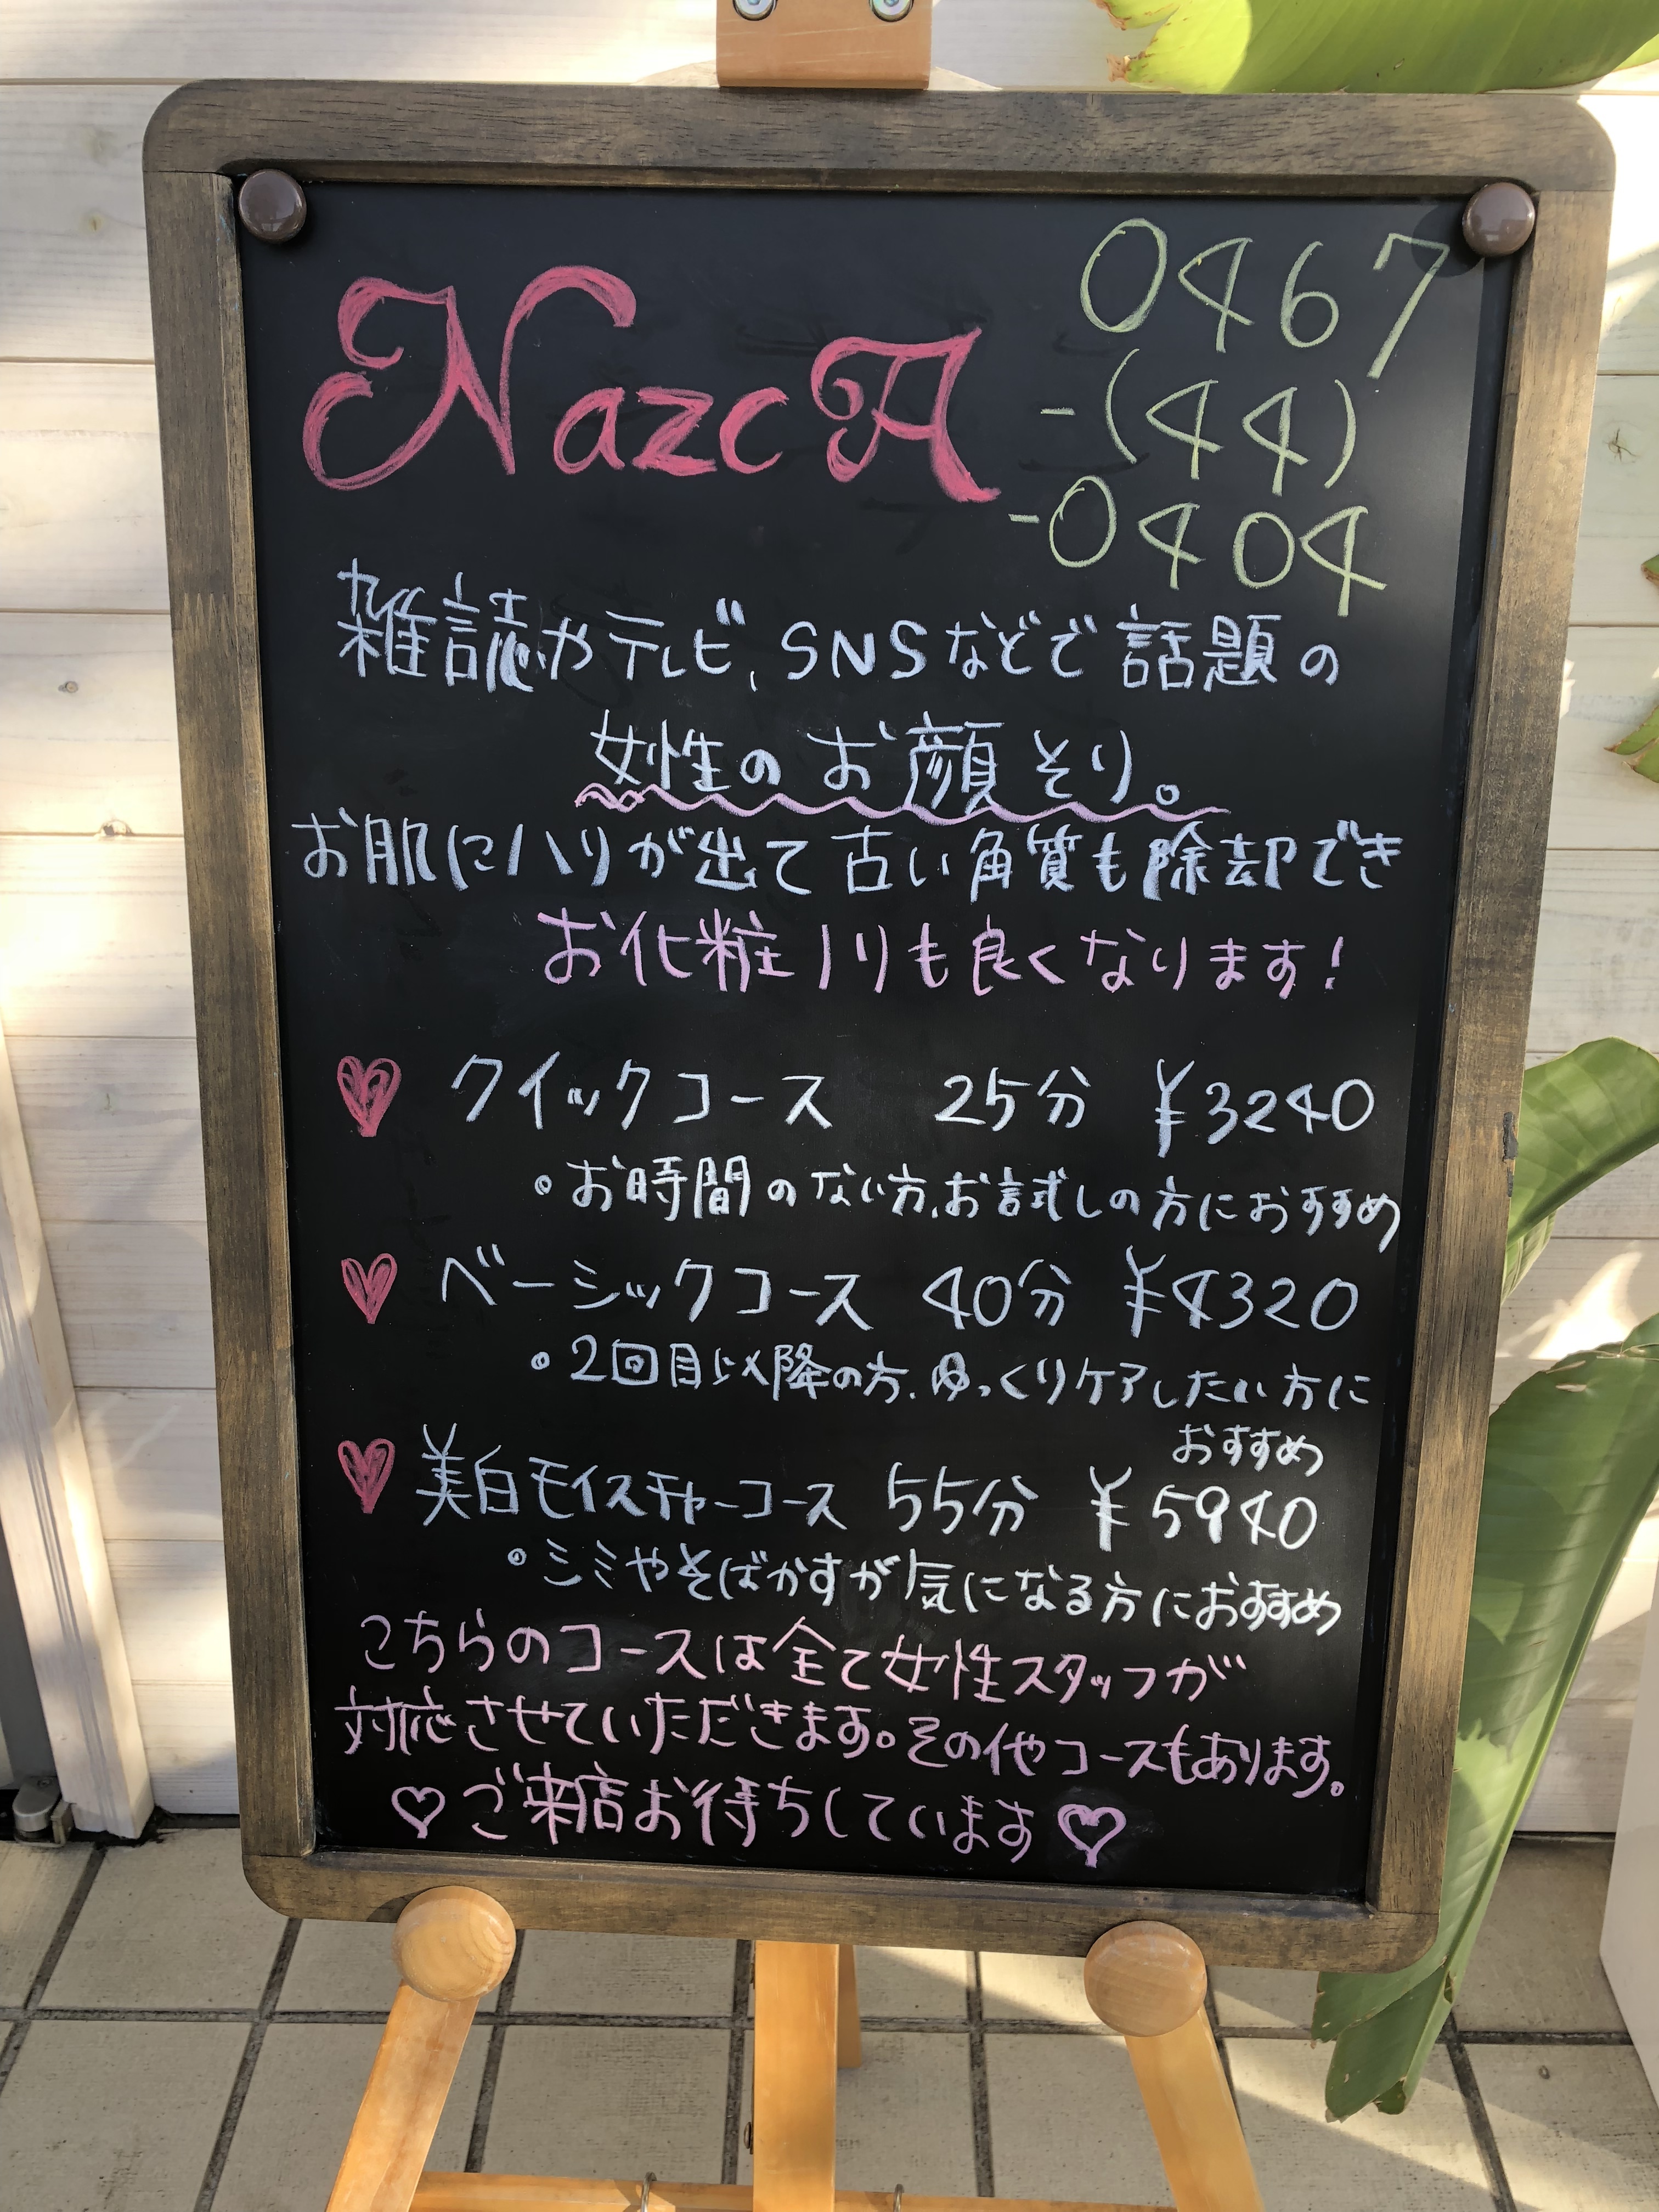 NazcA
0467
-(44)
-0404
雑誌やテレビ、SNSなどで話題の
女性のお顔そり。
お肌にハリが出て古い角質も除却でき
お化粧ノリも良くなります!
クイックコース 25分 ¥3240
・お時間のない方、お試しの方におすすめ
ベーシックコース 40分 ¥4320
・2回目以降の方、ゆっくりケアしたい方に
おすすめ
美白モイスチャーコース 55分 ¥5940
・シミやそばかすが気になる方におすすめ
こちらのコースは全て女性スタッフが
対応させていただきます。その他コースもあります。
♡ご来店お待ちしています♡